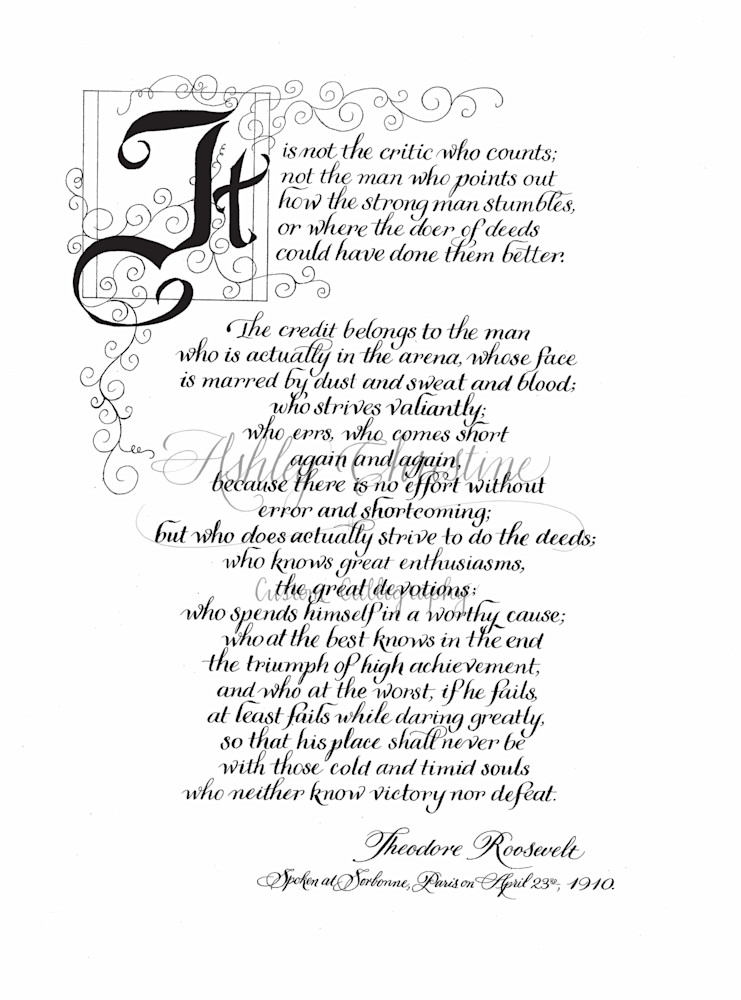 It is not the critic who counts;
not the man who points out
how the strong man stumbles,
or where the doer of deeds
could have done them better.
The credit belongs to the man
who is actually in the arena, whose face
is marred by dust and sweat and blood;
who strives valiantly;
who errs, who comes short
again and again,
because there is no effort without
error and shortcoming;
but who does actually strive to do the deeds;
who knows great enthusiasms,
the great devotions;
who spends himself in a worthy cause;
who at the best knows in the end
the triumph of high achievement,
and who at the worst, if he fails,
at least fails while daring greatly,
so that his place shall never be
with those cold and timid souls
who neither know victory nor defeat.
Theodore Roosevelt
Spoken at Sorbonne, Paris on April 23rd, 1910.
Ashley Christine
Custom Calligraphy